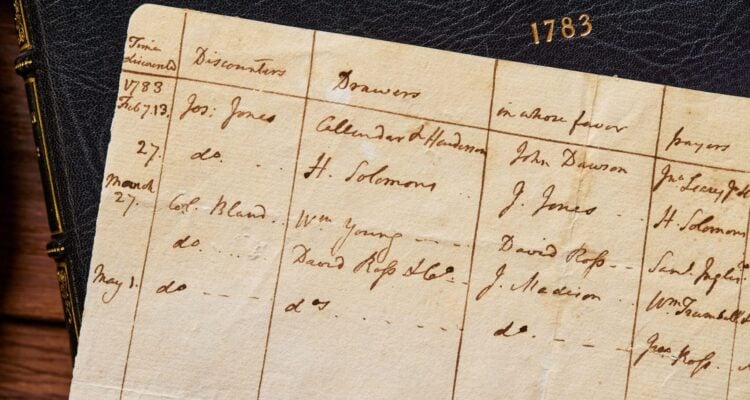 1783
Time discounted | Discounters | Drawers | in whose favor | payers
1783
Feb 7.13. | Jos: Jones | Callendar & Henderson | John Dawson | Jno
27. | do. | H. Solomons | J. Jones | H. Solomon
March
27. | Col. Bland | Wm Young | David Ross | Saml Inglis
do. | David Ross & Co. | J. Madison | Wm Trumbull &
May 1. | do | dos | do. | Ross